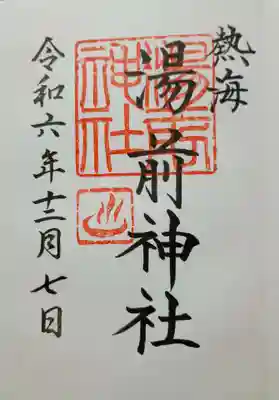 熱海
湯前神社
令和六年十二月七日
湯前
神社